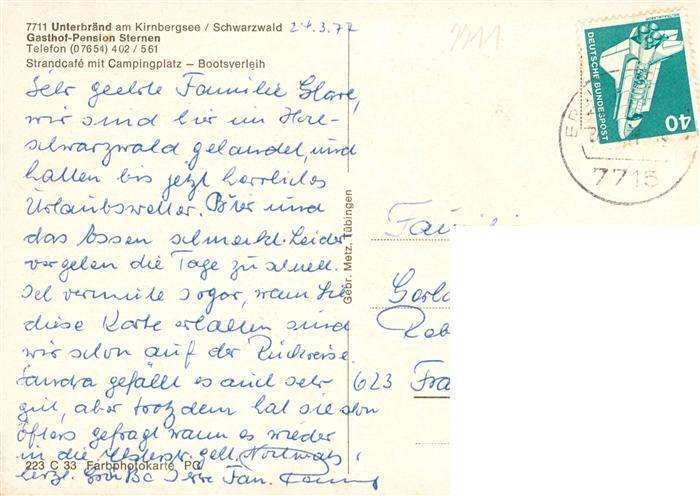 7711 Unterbränd am Kirnbergsee / Schwarzwald 24.3.77
Gasthof-Pension Sternen
Telefon (07654) 402 / 561
Strandcafé mit Campingplatz – Bootsverleih
Sehr geehrte Familie
wir sind hier im
schwarzwald gelandet, und
hatten bis jetzt herrliches
Urlaubswetter. Bier und
das Essen schmeckt. Leider
vergehen die Tage zu schnell.
Ich vermute sogar, wenn Sie
diese Karte erhalten sind
wir schon auf der Rückreise.
Sandra gefällt es auch sehr
gut, aber trotzdem hat sie schon
öfters gefragt wann es wieder
in die geht.
herzl. Ihre Fam.
223 C 33 Farbphotokarte
Gebr. Metz, Tübingen
DEUTSCHE BUNDESPOST
40
7715
Famili
Gerla
Rob
623 Fra